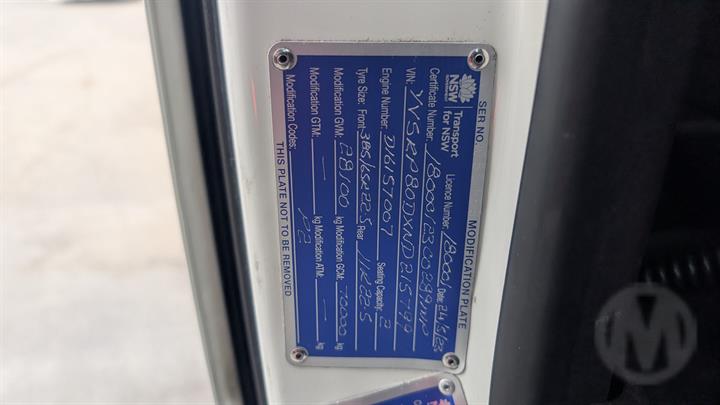 SER NO. MODIFICATION PLATE
NSW GOVERNMENT Transport for NSW Licence Number: 18000
Certificate Number: 18000/23C0289MP Date: 24/5/23
VIN: YV5RP80DXND215799
Engine Number: D16157007 Seating Capacity: 2
Tyre Size: Front 385/65R22.5 Rear 11R22.5
Modification GVM: 28100 kg Modification GCM: 70000 kg
Modification GTM: — kg Modification ATM: — kg
Modification Codes: P2
THIS PLATE NOT TO BE REMOVED
M